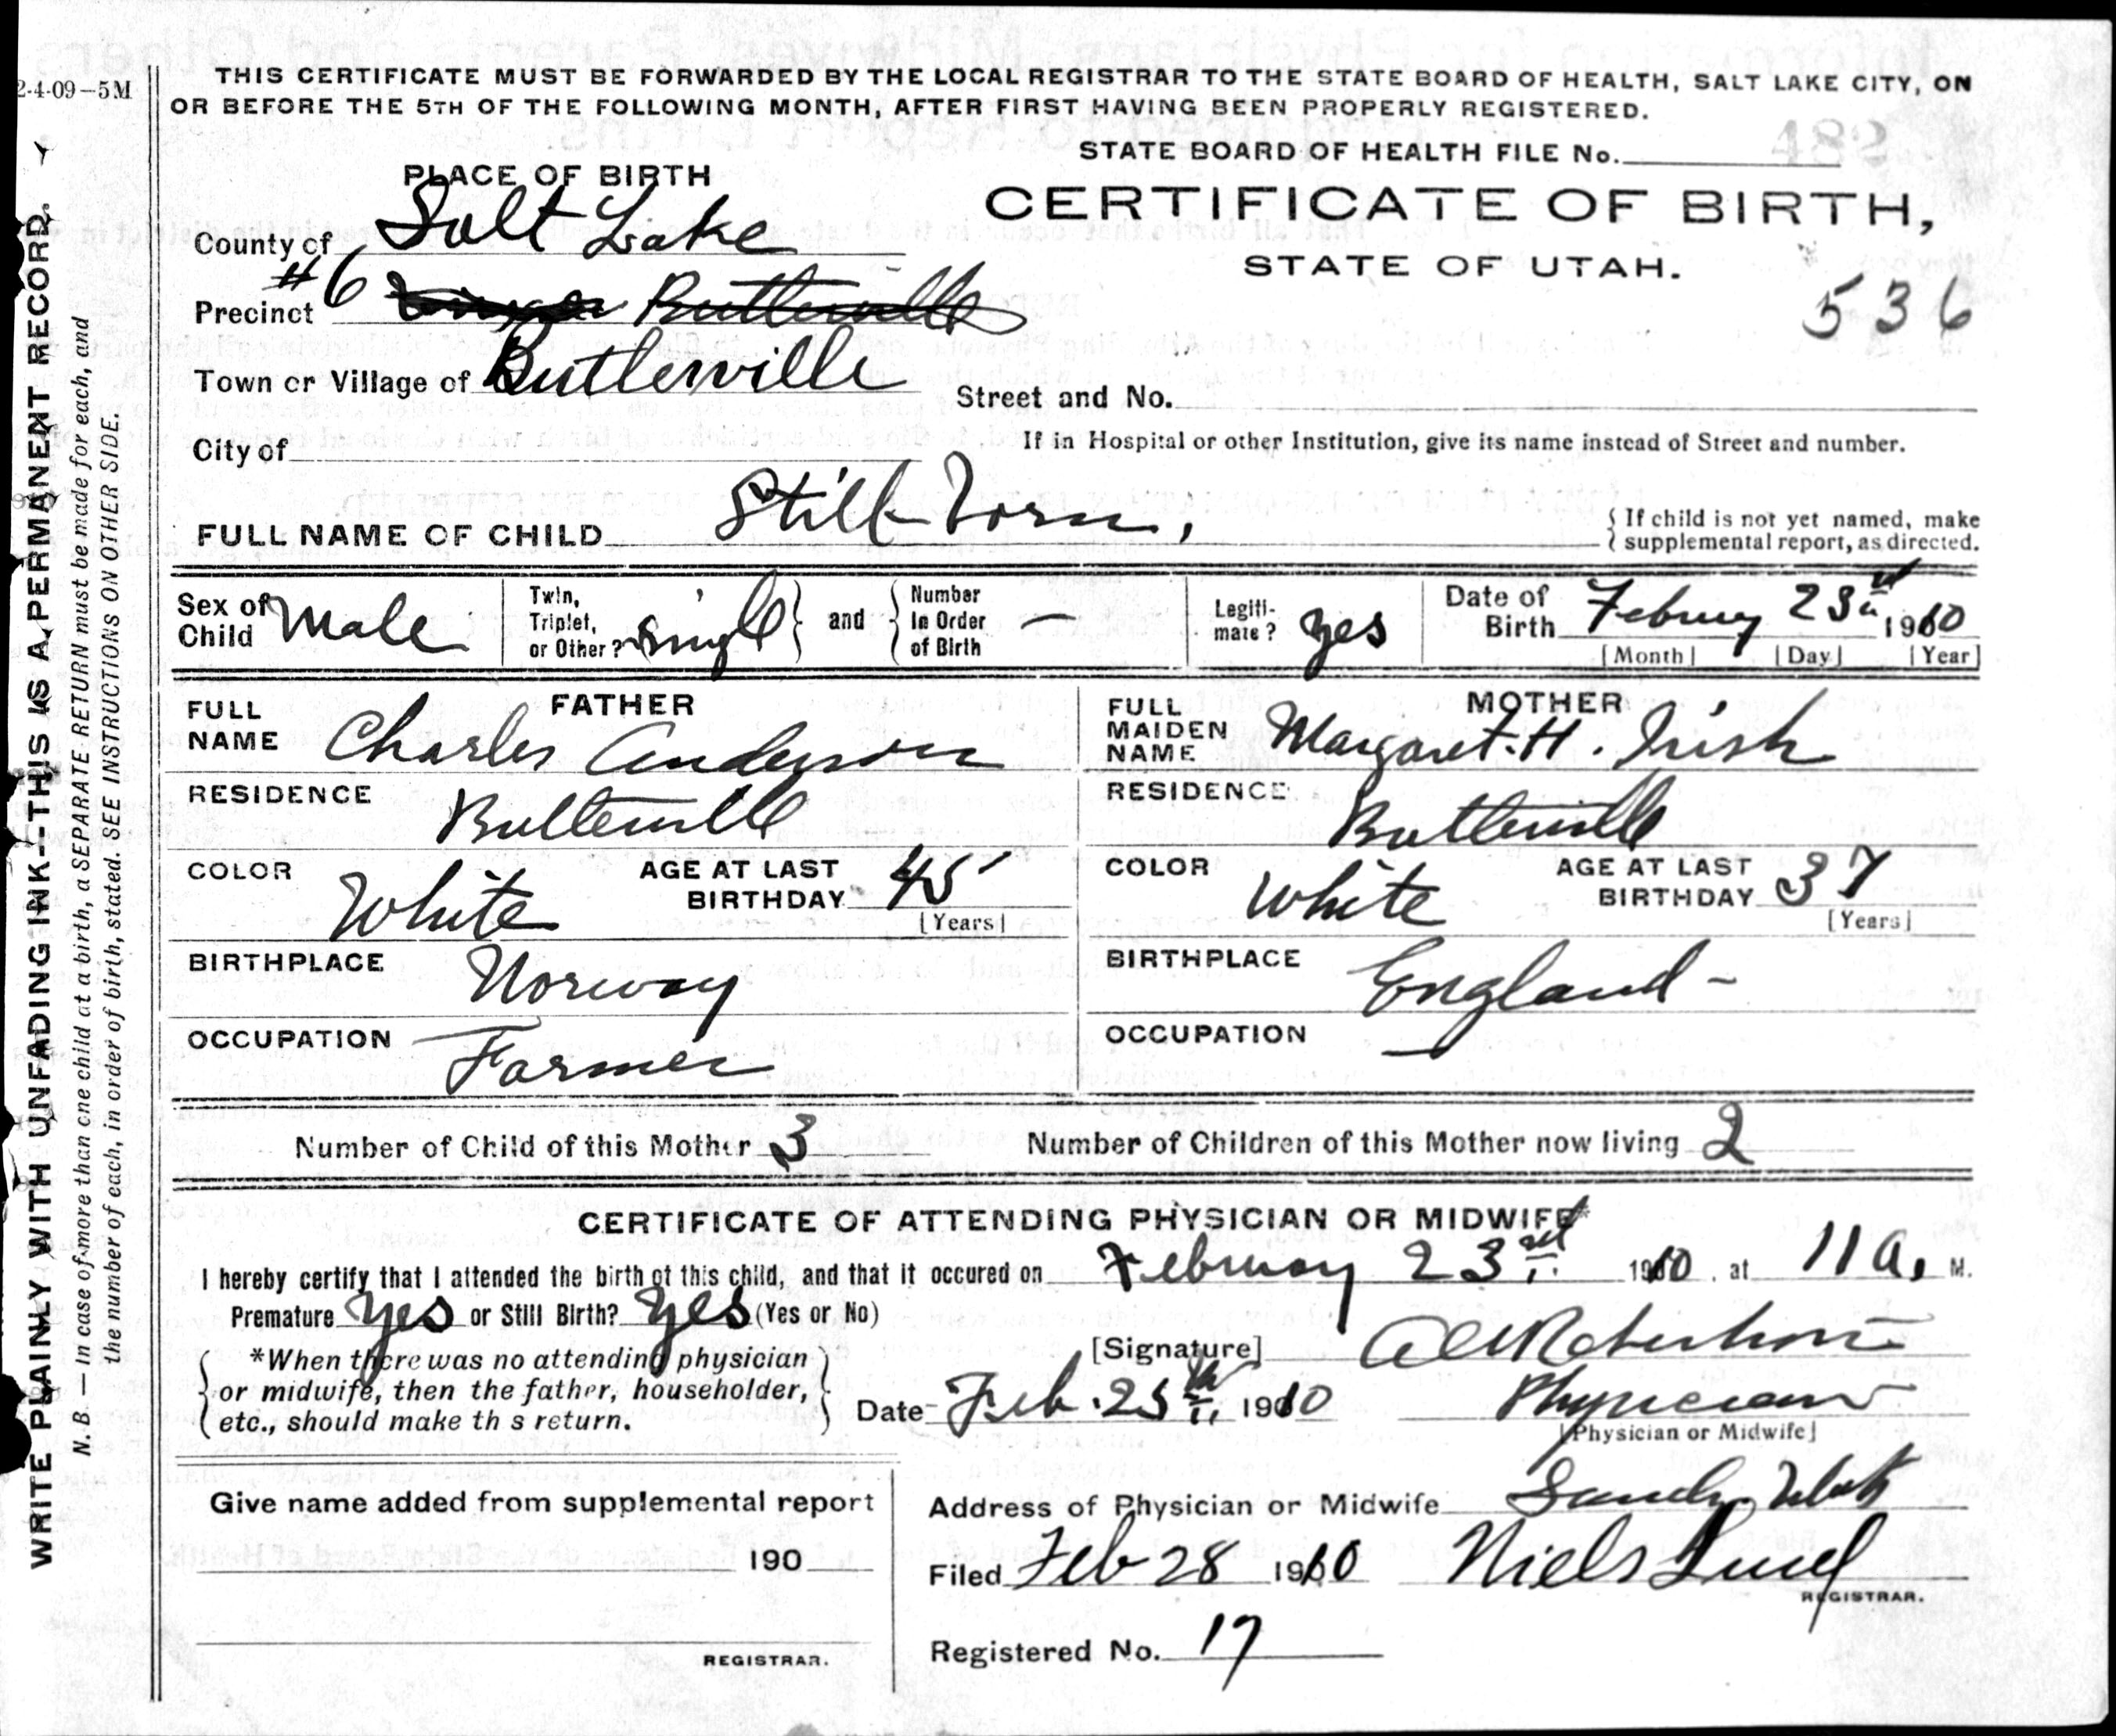 2-4-09-5M
THIS CERTIFICATE MUST BE FORWARDED BY THE LOCAL REGISTRAR TO THE STATE BOARD OF HEALTH, SALT LAKE CITY, ON
OR BEFORE THE 5TH OF THE FOLLOWING MONTH, AFTER FIRST HAVING BEEN PROPERLY REGISTERED.
STATE BOARD OF HEALTH FILE No.
PLACE OF BIRTH
CERTIFICATE OF BIRTH,
STATE OF UTAH.
536
County of Salt Lake
Precinct #6 Butlerville
Town or Village of Butlerville
Street and No.
City of
If in Hospital or other Institution, give its name instead of Street and number.
FULL NAME OF CHILD Still born,
{ If child is not yet named, make
supplemental report, as directed.
Sex of Child Male
Twin, Triplet, or Other? single } and { Number In Order of Birth —
Legiti-mate? yes
Date of Birth February 23rd 1910
[Month] [Day] [Year]
FATHER
FULL NAME Charles Anderson
RESIDENCE Butlerville
COLOR White AGE AT LAST BIRTHDAY 45
[Years]
BIRTHPLACE Norway
OCCUPATION Farmer
MOTHER
FULL MAIDEN NAME Margaret. H. Irish
RESIDENCE Butlerville
COLOR White AGE AT LAST BIRTHDAY 37
[Years]
BIRTHPLACE England -
OCCUPATION —
Number of Child of this Mother 3 Number of Children of this Mother now living 2
CERTIFICATE OF ATTENDING PHYSICIAN OR MIDWIFE*
I hereby certify that I attended the birth of this child, and that it occured on February 23rd 1910, at 11 a. M.
Premature yes or Still Birth? yes (Yes or No)
[Signature] Robertson
*When there was no attending physician
or midwife, then the father, householder,
etc., should make th s return.
Date Feb. 25th 1910 Physician
[Physician or Midwife]
Give name added from supplemental report
190
REGISTRAR.
Address of Physician or Midwife Sandy, Utah
Filed Feb 28 1910 Niels Lind
REGISTRAR.
Registered No. 17
WRITE PLAINLY WITH UNFADING INK—THIS IS A PERMANENT RECORD.
N. B. — In case of more than one child at a birth, a SEPARATE RETURN must be made for each, and
the number of each, in order of birth, stated. SEE INSTRUCTIONS ON OTHER SIDE.